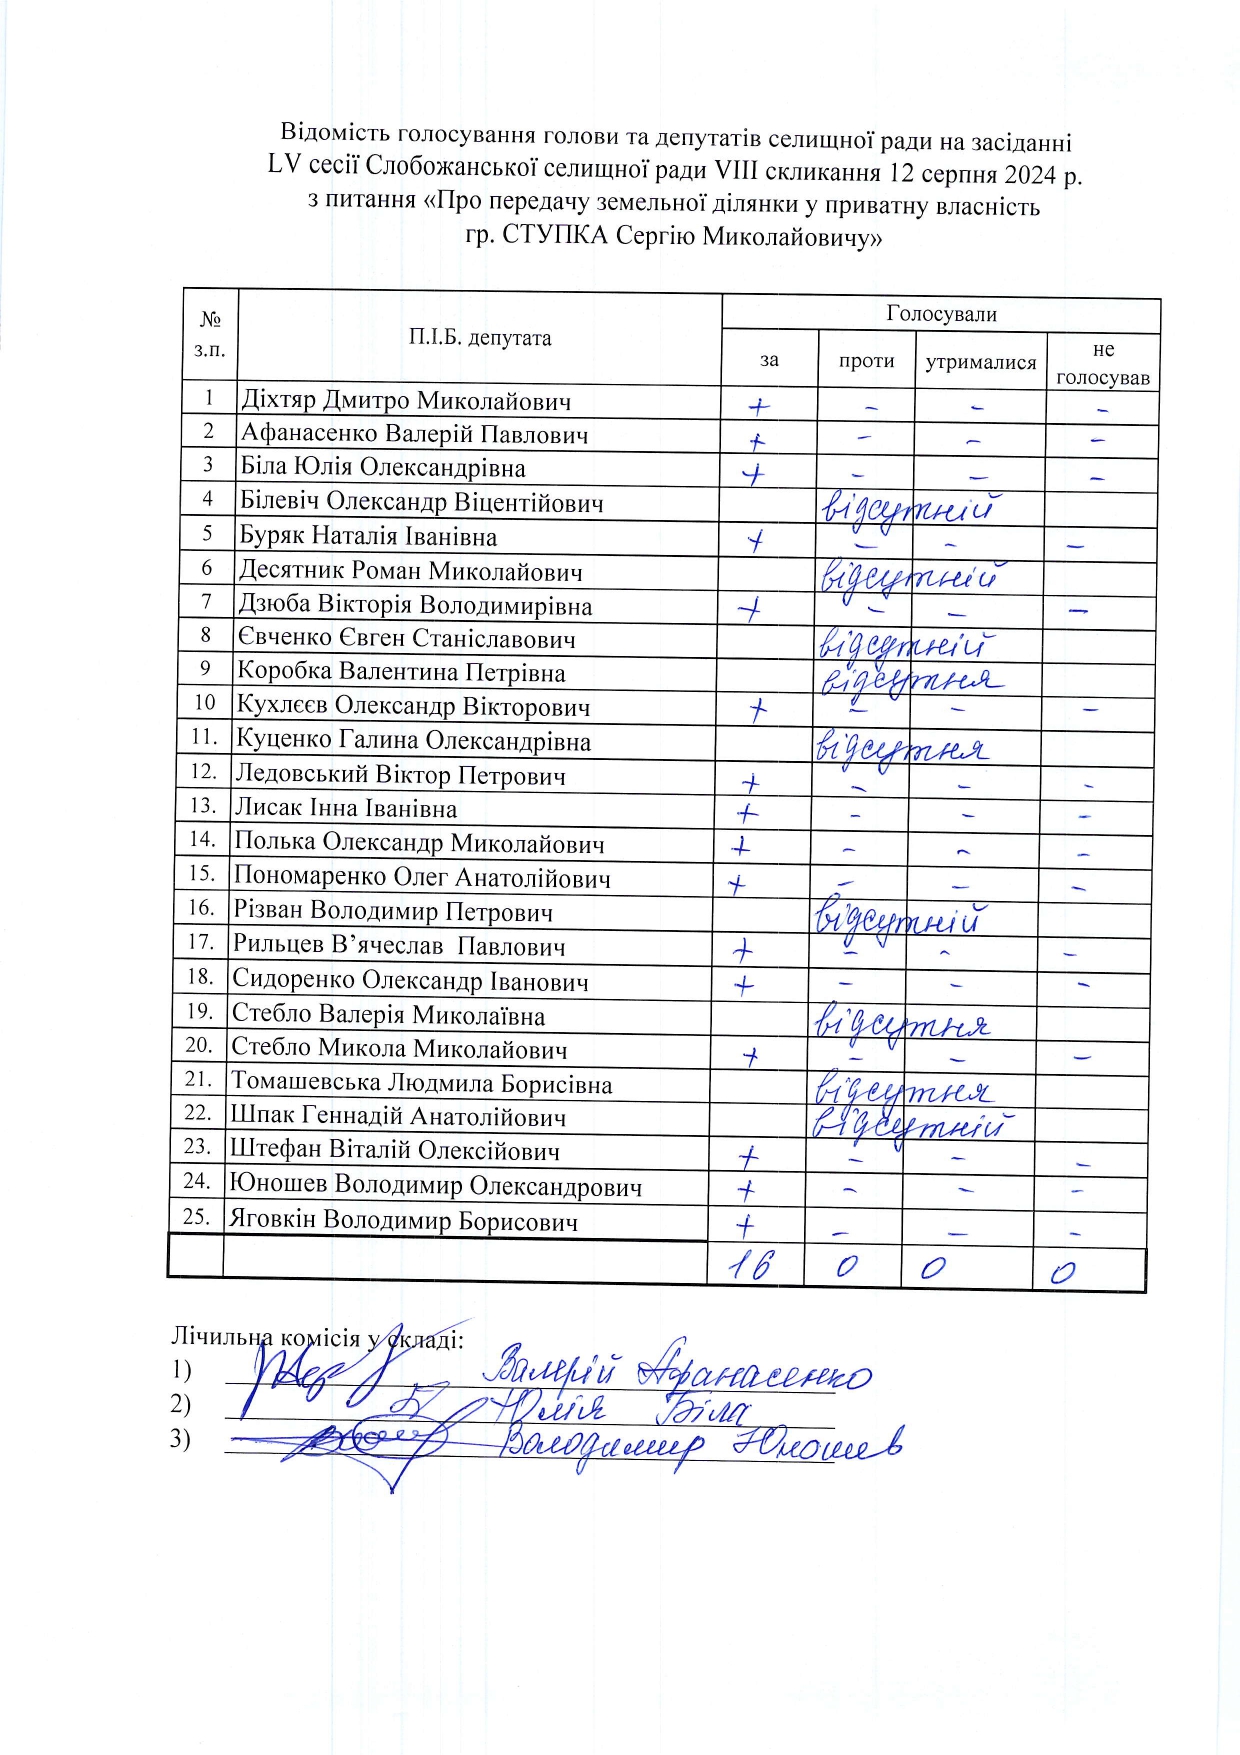 Відомість голосування голови та депутатів селищної ради на засіданні
LV сесії Слобожанської селищної ради VIII скликання 12 серпня 2024 р.
з питання «Про передачу земельної ділянки у приватну власність
гр. СТУПКА Сергію Миколайовичу»
№ з.п. П.І.Б. депутата Голосували
за проти утрималися не голосував
1 Діхтяр Дмитро Миколайович + - - -
2 Афанасенко Валерій Павлович + - - -
3 Біла Юлія Олександрівна + - - -
4 Білевіч Олександр Віцентійович відсутній
5 Буряк Наталія Іванівна + - - -
6 Десятник Роман Миколайович відсутній
7 Дзюба Вікторія Володимирівна + - - -
8 Євченко Євген Станіславович відсутній
9 Коробка Валентина Петрівна відсутня
10 Кухлєєв Олександр Вікторович + - - -
11. Куценко Галина Олександрівна відсутня
12. Ледовський Віктор Петрович + - - -
13. Лисак Інна Іванівна + - - -
14. Полька Олександр Миколайович + - - -
15. Пономаренко Олег Анатолійович + - - -
16. Різван Володимир Петрович відсутній
17. Рильцев В’ячеслав Павлович + - - -
18. Сидоренко Олександр Іванович + - - -
19. Стебло Валерія Миколаївна відсутня
20. Стебло Микола Миколайович + - - -
21. Томашевська Людмила Борисівна відсутня
22. Шпак Геннадій Анатолійович відсутній
23. Штефан Віталій Олексійович + - - -
24. Юношев Володимир Олександрович + - - -
25. Яговкін Володимир Борисович + - - -
16 0 0 0
Лічильна комісія у складі:
1) Валерій Афанасенко
2) Юлія Біла
3) Володимир Юношев